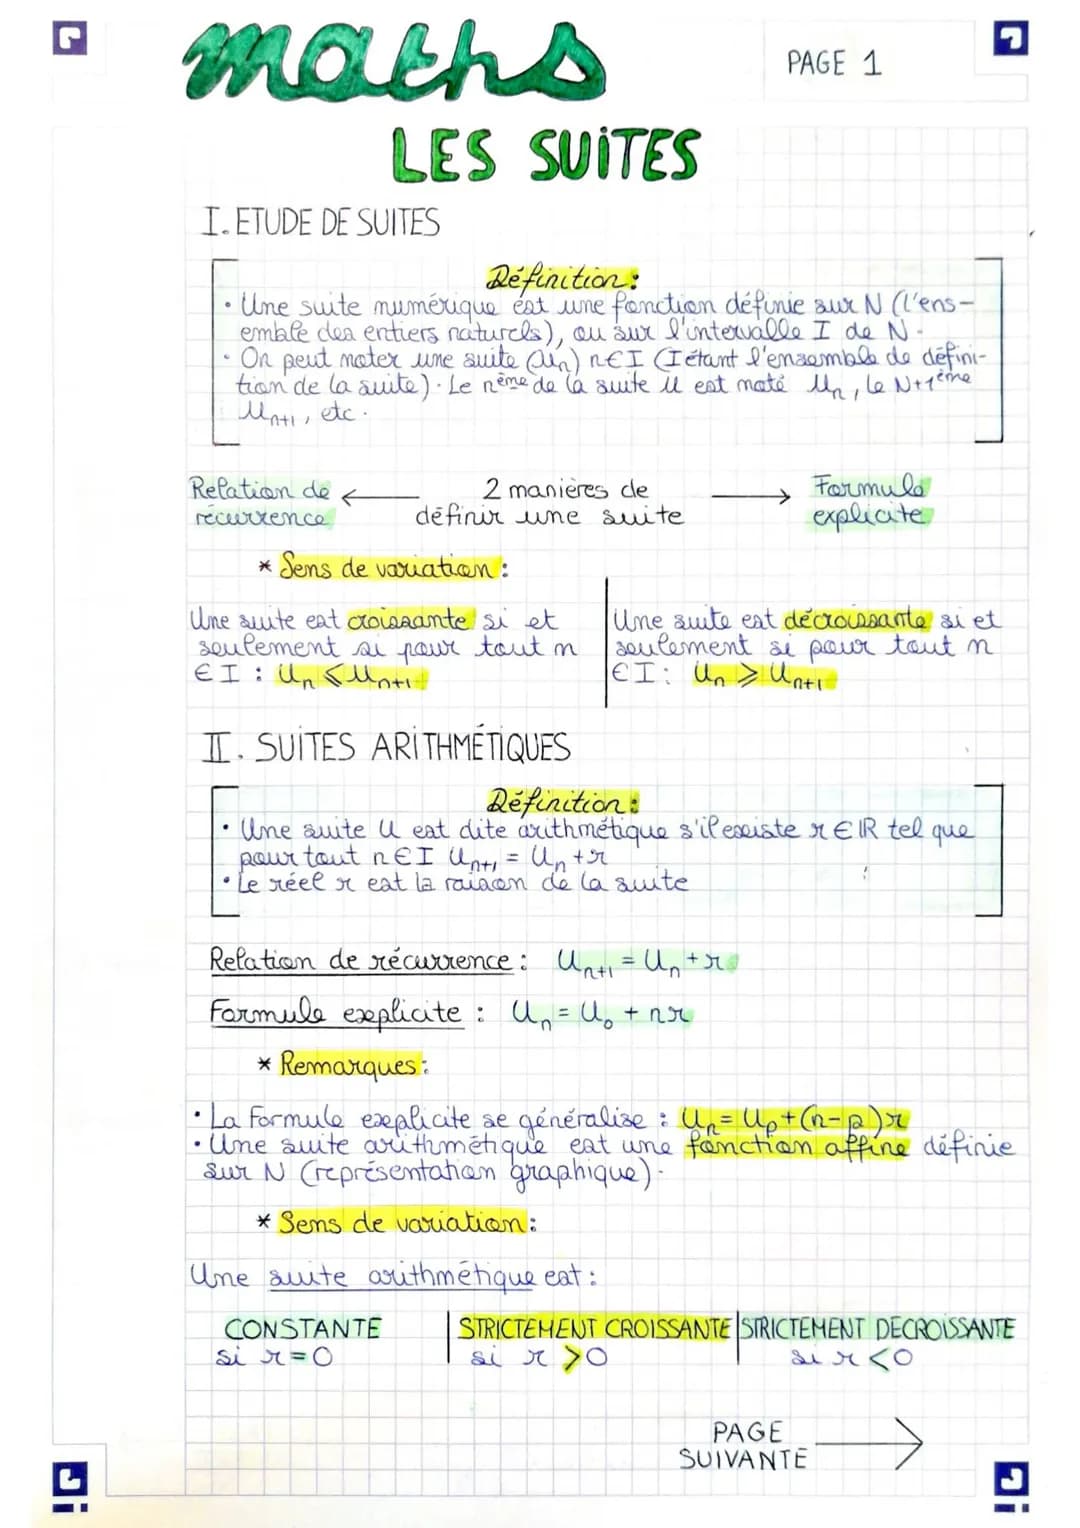 maths
PAGE 1
LES SUITES
I. ETUDE DE SUITES
Définition:
• Une suite numérique est une fonction définie sur N (l'ens-
emble des entiers naturels), ou sur l'intervalle I de N.
• On peut noter une suite (Un) n∈I (I étant l'ensemble de défini-
tion de la suite). Le nème de la suite U est noté Un, le N+1ème
Un+1, etc.
Relation de récurrence ← 2 manières de définir une suite → Formule explicite
* Sens de variation:
Une suite est croissante si et
seulement si pour tout n
∈ I : Un ⩽ Un+1
Une suite est décroissante si et
seulement si pour tout n
∈ I : Un ⩾ Un+1
II. SUITES ARITHMÉTIQUES
Définition:
• Une suite U est dite arithmétique s'il existe r ∈ IR tel que
pour tout n∈I Un+1 = Un + r
• Le réel r est la raison de la suite
Relation de récurrence : Un+1 = Un + r
Formule explicite : Un = U0 + nr
* Remarques:
• La Formule explicite se généralise : Un = Up + (n-p)r
• Une suite arithmétique est une fonction affine définie
sur N (représentation graphique).
* Sens de variation:
Une suite arithmétique est :
CONSTANTE
si r = 0
STRICTEMENT CROISSANTE
si r > 0
STRICTEMENT DECROISSANTE
si r < 0
PAGE
SUIVANTE →